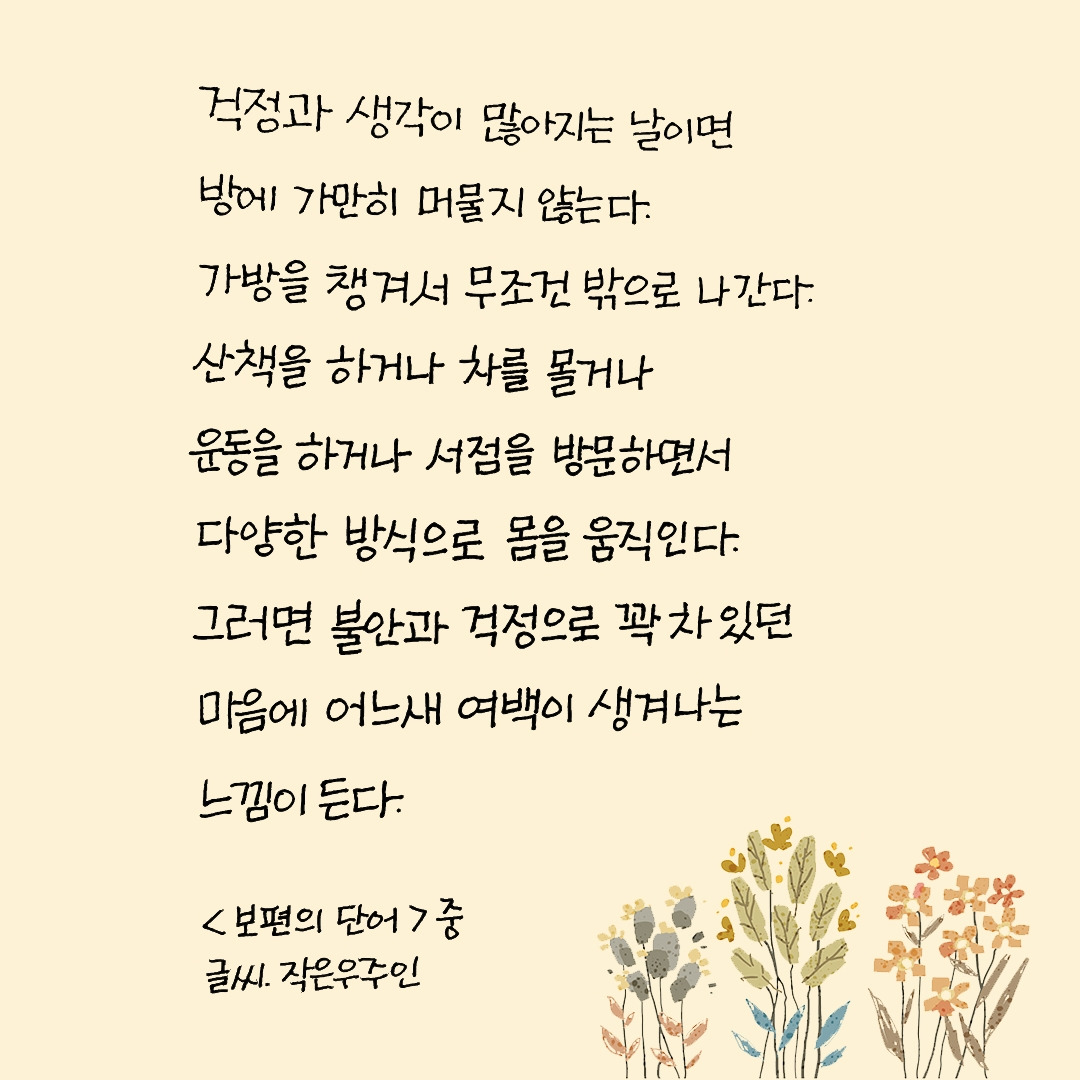 걱정과 생각이 많아지는 날이면
방에 가만히 머물지 않는다.
가방을 챙겨서 무조건 밖으로 나간다.
산책을 하거나 차를 몰거나
운동을 하거나 서점을 방문하면서
다양한 방식으로 몸을 움직인다.
그러면 불안과 걱정으로 꽉 차 있던
마음에 어느새 여백이 생겨나는
느낌이 든다.
<보편의 단어> 중
글씨. 작은우주인